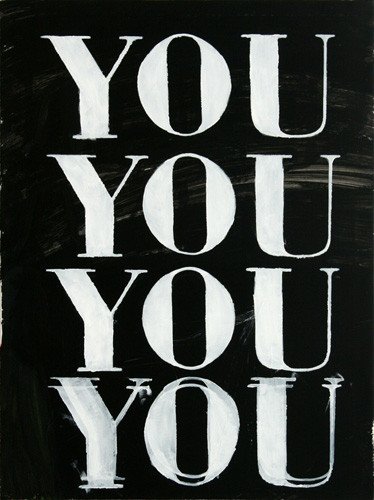 YOU
YOU
YOU
YOU